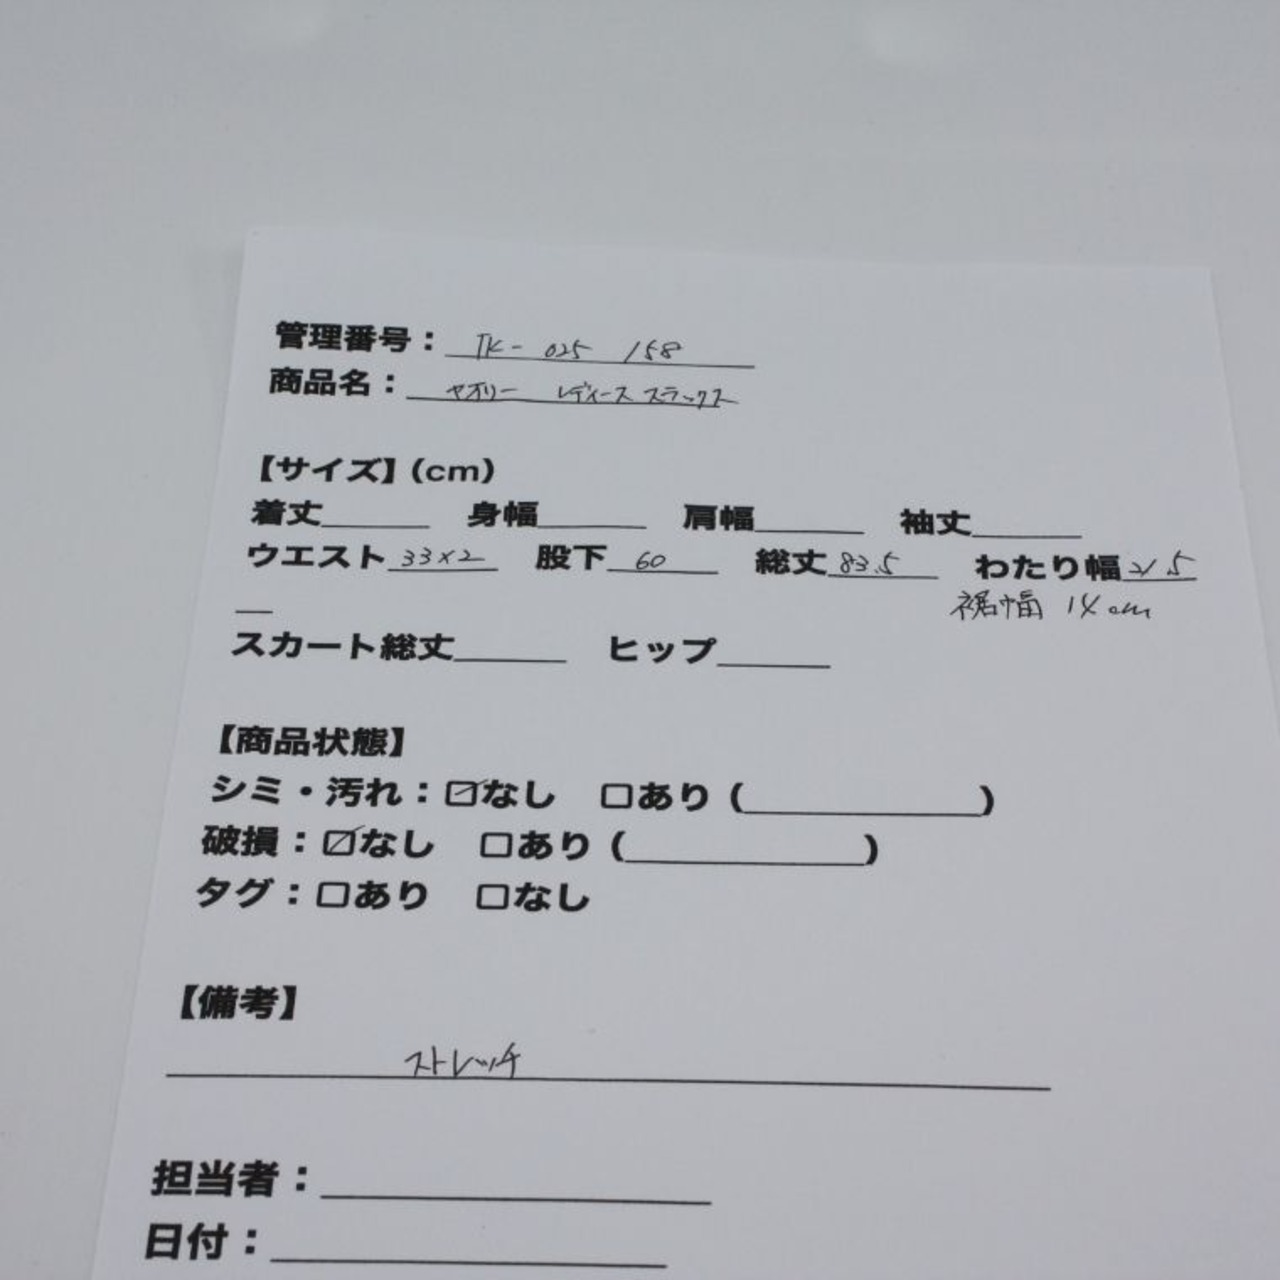 管理番号： TK- 025 158
商品名： ヤオリー レディース スラックス
【サイズ】(cm)
着丈______ 身幅______ 肩幅______ 袖丈______
ウエスト 33×2 股下 60 総丈 83.5 わたり幅 21.5
裾幅 14cm
スカート総丈______ ヒップ______
【商品状態】
シミ・汚れ：☑なし □あり (____________)
破損：☑なし □あり (____________)
タグ：□あり □なし
【備考】
ストレッチ
担当者：____________
日付：____________